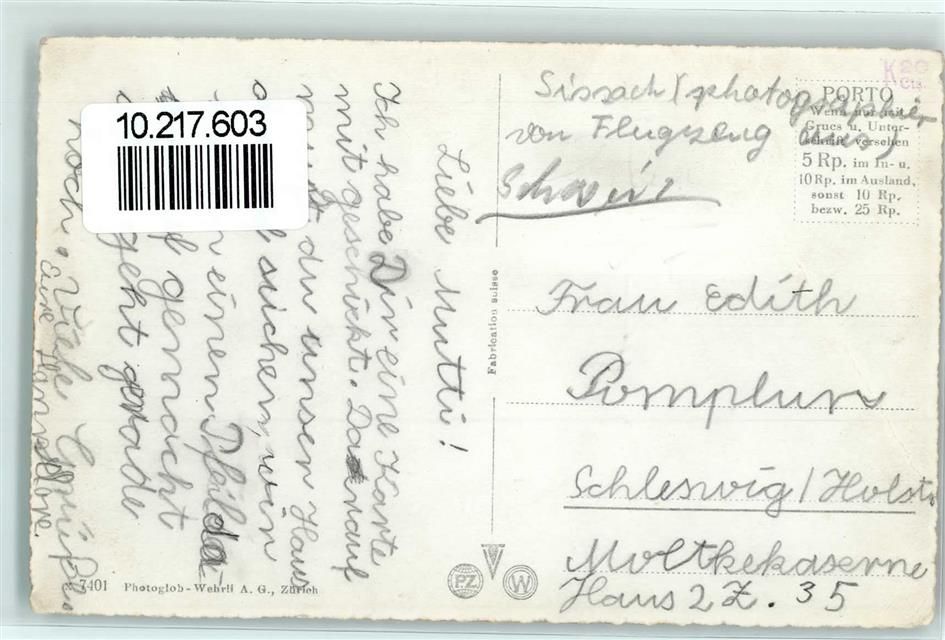 10.217.603
Liebe Mutti!
Ich habe Dir eine Karte
mit geschickt. Darauf
mußt du unser Haus
suchen, wir
einen Pfeil da
gemacht
geht gerade
noch. Viele Grüße
Eure Hannelore.
Sissach / photographier
von Flugzeug aus)
Schweiz
K 20
Cts.
PORTO
Wenn nur mit
Grues u. Unter-
schrift versehen
5 Rp. im In- u.
10 Rp. im Ausland,
sonst 10 Rp.
bezw. 25 Rp.
Fabrication suisse
Frau Edith
Pomplun
Schleswig / Holst.
Moltkekaserne
Haus 2 Z. 35
7401 Photoglob-Wehrli A. G., Zürich
PZ W